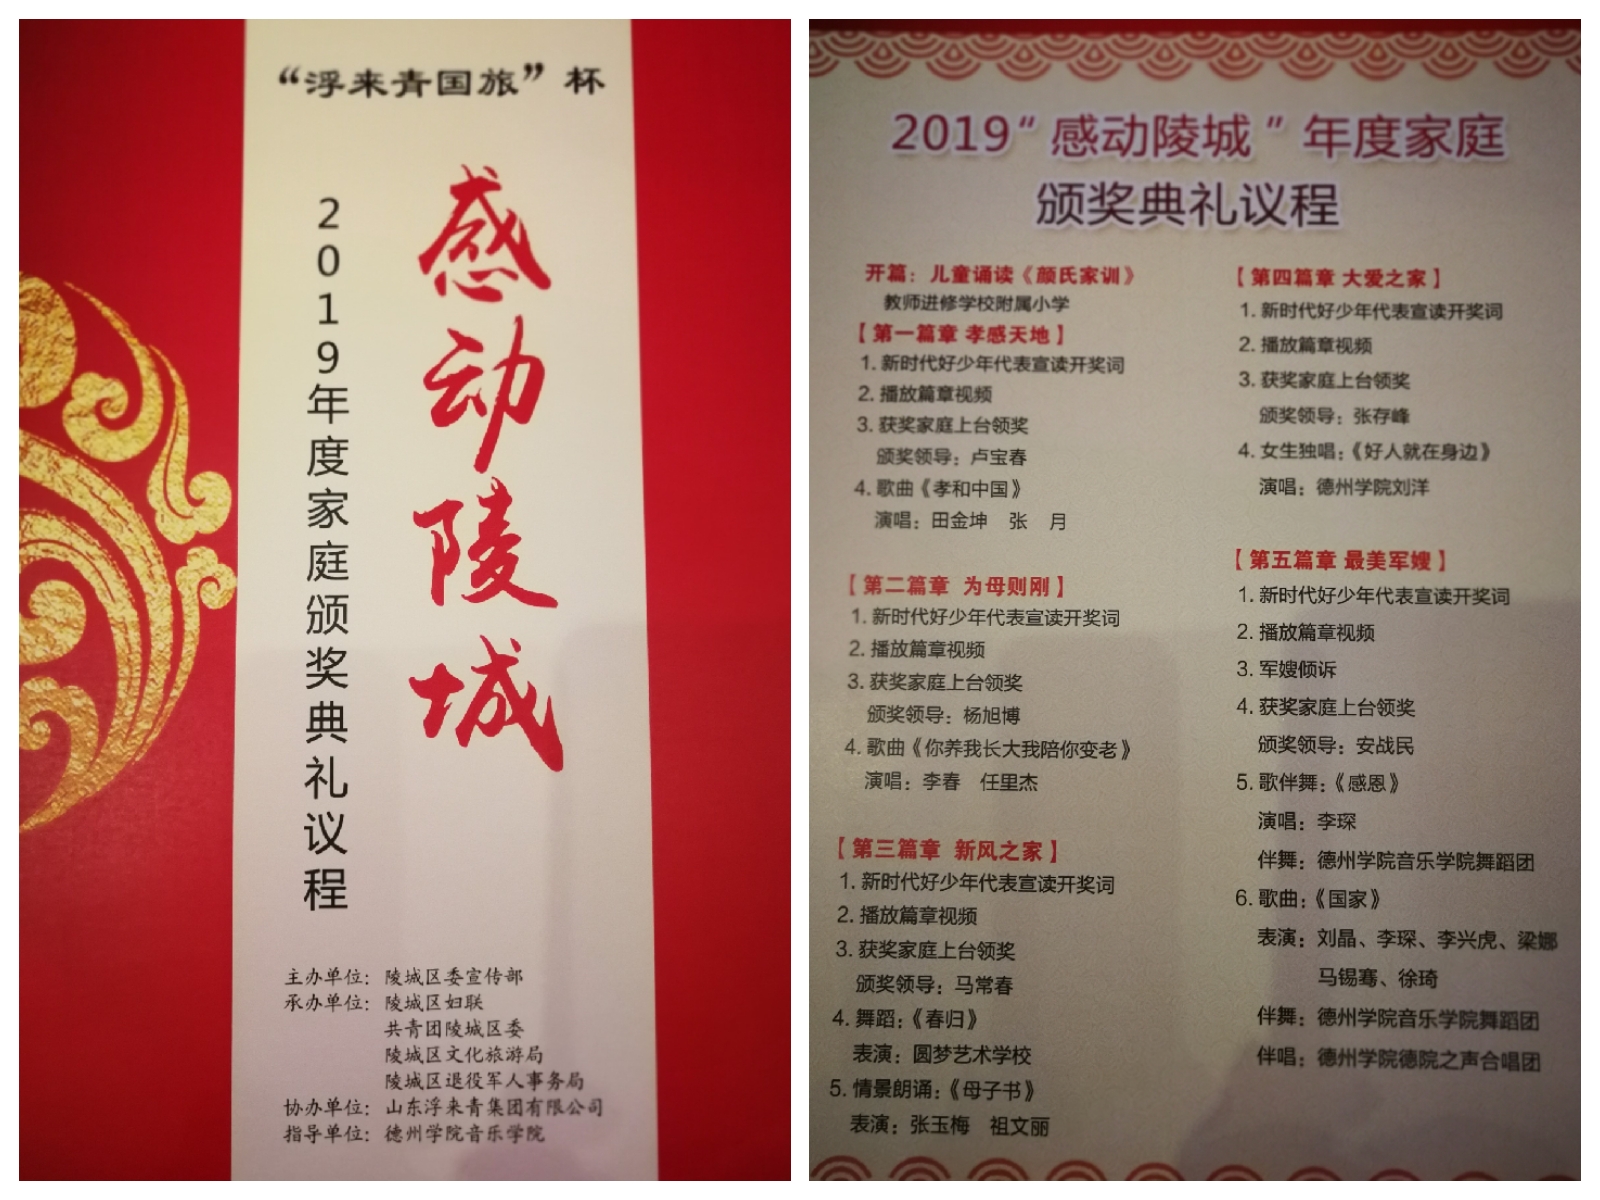 “浮来青国旅”杯
感动陵城
2019年度家庭颁奖典礼议程
主办单位：陵城区委宣传部
承办单位：陵城区妇联
共青团陵城区委
陵城区文化旅游局
陵城区退役军人事务局
协办单位：山东浮来青集团有限公司
指导单位：德州学院音乐学院
2019“感动陵城”年度家庭
颁奖典礼议程
开篇：儿童诵读《颜氏家训》
教师进修学校附属小学
【第一篇章 孝感天地】
1. 新时代好少年代表宣读开奖词
2. 播放篇章视频
3. 获奖家庭上台领奖
颁奖领导：卢宝春
4. 歌曲《孝和中国》
演唱：田金坤 张 月
【第二篇章 为母则刚】
1. 新时代好少年代表宣读开奖词
2. 播放篇章视频
3. 获奖家庭上台领奖
颁奖领导：杨旭博
4. 歌曲《你养我长大我陪你变老》
演唱：李春 任里杰
【第三篇章 新风之家】
1. 新时代好少年代表宣读开奖词
2. 播放篇章视频
3. 获奖家庭上台领奖
颁奖领导：马常春
4. 舞蹈：《春归》
表演：圆梦艺术学校
5. 情景朗诵：《母子书》
表演：张玉梅 祖文丽
【第四篇章 大爱之家】
1. 新时代好少年代表宣读开奖词
2. 播放篇章视频
3. 获奖家庭上台领奖
颁奖领导：张存峰
4. 女生独唱：《好人就在身边》
演唱：德州学院刘洋
【第五篇章 最美军嫂】
1. 新时代好少年代表宣读开奖词
2. 播放篇章视频
3. 军嫂倾诉
4. 获奖家庭上台领奖
颁奖领导：安战民
5. 歌伴舞：《感恩》
演唱：李琛
伴舞：德州学院音乐学院舞蹈团
6. 歌曲：《国家》
表演：刘晶、李琛、李兴虎、梁娜
马锡骞、徐琦
伴舞：德州学院音乐学院舞蹈团
伴唱：德州学院德院之声合唱团